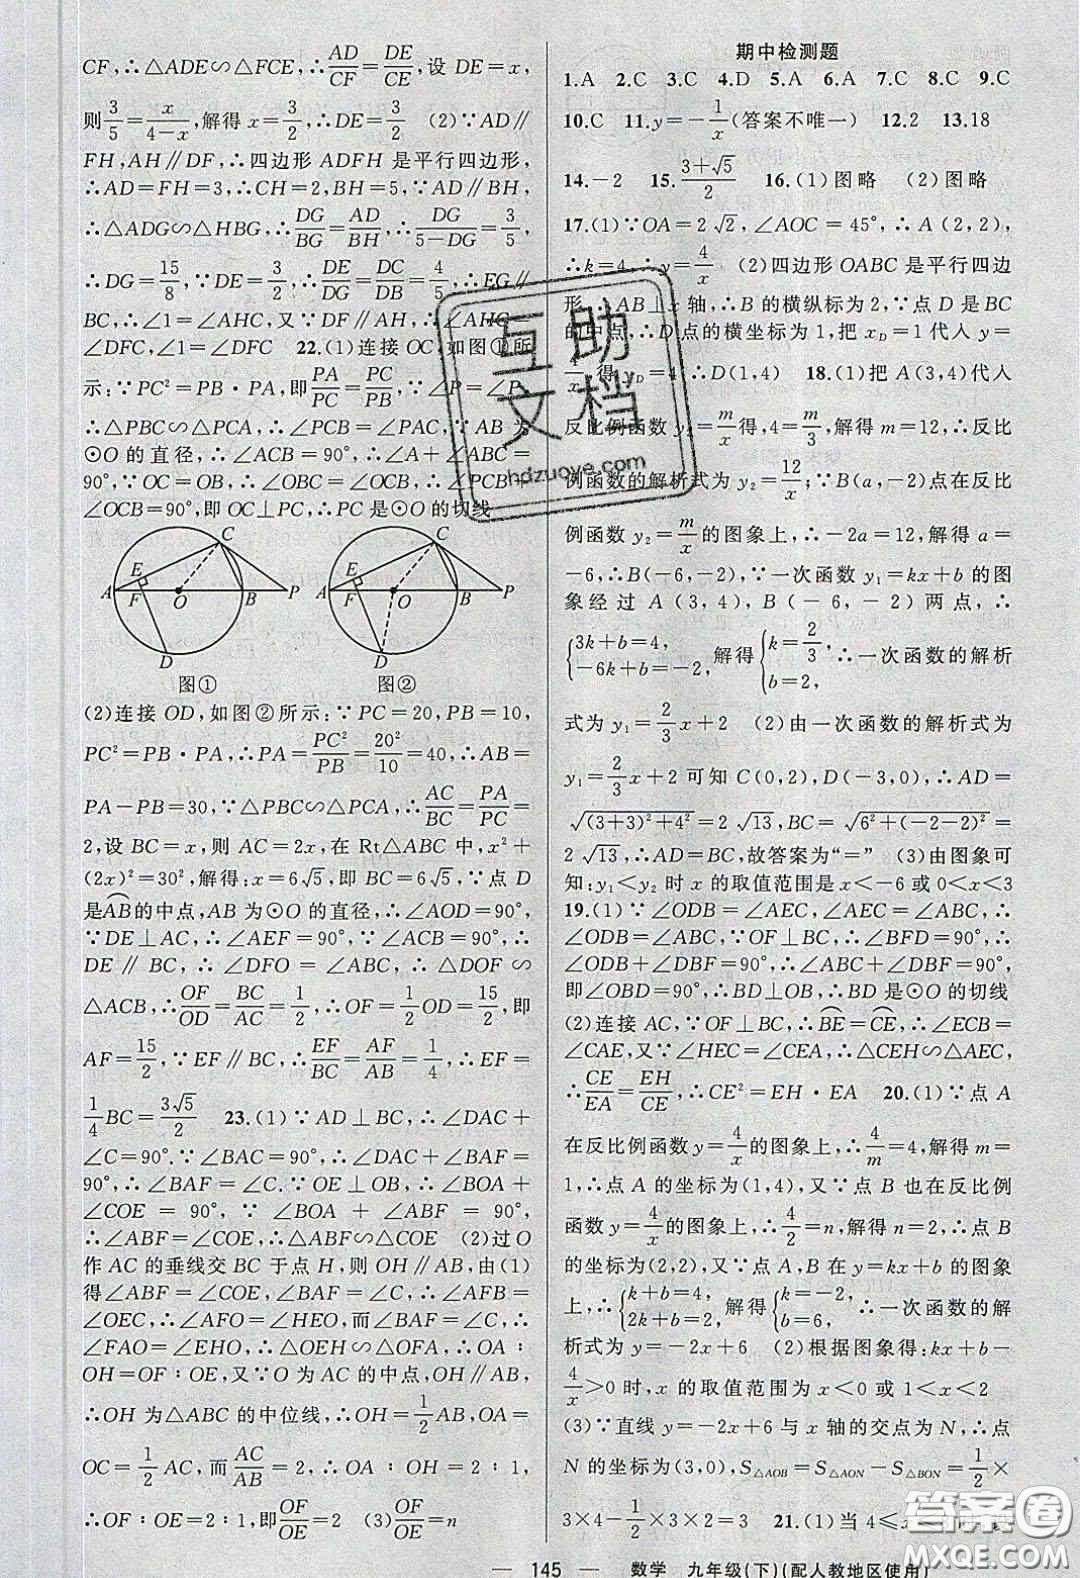 CF,∴△ADE∽△FCE,∴AD/CF=DE/CE,设 DE=x,
则3/5=x/(4-x),解得 x=3/2,∴DE=3/2 (2)∵AD∥
FH,AH∥DF,∴四边形 ADFH 是平行四边形,
∴AD=FH=3,∴CH=2,BH=5,∵AD∥BH,
∴△ADG∽△HBG,∴DG/BG=AD/BH,∴DG/(5-DG)=3/5,
∴DG=15/8,∵DE=3/2,∴DE/DG=DC/DB=4/5,∴EG∥
BC,∴∠1=∠AHC,又∵DF∥AH,∴∠AHC=
∠DFC,∠1=∠DFC 22.(1)连接 OC,如图①所
示:∵PC²=PB·PA,即PA/PC=PC/PB,∵∠P=∠P,
∴△PBC∽△PCA,∴∠PCB=∠PAC,∵AB 为
⊙O 的直径,∴∠ACB=90°,∴∠A+∠ABC=
90°,∵OC=OB,∴∠OBC=∠OCB,∴∠PCB+
∠OCB=90°,即 OC⊥PC,∴PC 是⊙O 的切线
A E F O B P C D
A E F O B P C D
图① 图②
(2)连接 OD,如图②所示:∵PC=20,PB=10,
PC²=PB·PA,∴PA=PC²/PB=20²/10=40,∴AB=
PA-PB=30,∵△PBC∽△PCA,∴AC/BC=PA/PC=
2,设 BC=x,则 AC=2x,在 Rt△ABC 中,x²+
(2x)²=30²,解得:x=6√5,即 BC=6√5,∵点 D
是AB的中点,AB 为⊙O 的直径,∴∠AOD=90°,
∵DE⊥AC,∴∠AEF=90°,∵∠ACB=90°,∴
DE∥BC,∴∠DFO=∠ABC,∴△DOF∽
△ACB,∴OF/OD=BC/AC=1/2,∴OF=1/2OD=15/2,即
AF=15/2,∵EF∥BC,∴EF/BC=AF/AB=1/4,∴EF=
1/4BC=3√5/2 23.(1)∵AD⊥BC,∴∠DAC+
∠C=90°.∵∠BAC=90°,∴∠DAC+∠BAF=
90°,∴∠BAF=∠C.∵OE⊥OB,∴∠BOA+
∠COE=90°,∵∠BOA+∠ABF=90°,
∴∠ABF=∠COE,∴△ABF∽△COE (2)过 O
作 AC 的垂线交 BC 于点 H,则 OH∥AB,由(1)
得∠ABF=∠COE,∠BAF=∠C,∴∠AFB=
∠OEC,∴∠AFO=∠HEO,而∠BAF=∠C,∴
∠FAO=∠EHO,∴△OEH∽△OFA,∴OA∶
OH=OF∶OE,又∵O 为 AC 的中点,OH∥AB,
∴OH 为△ABC 的中位线,∴OH=1/2AB,OA=
OC=1/2AC,而AC/AB=2,∴OA∶OH=2∶1,
∴OF∶OE=2∶1,即OF/OE=2 (3)OF/OE=n
期中检测题
1.A 2.C 3.C 4.D 5.A 6.A 7.C 8.C 9.C
10.C 11.y=-1/x(答案不唯一) 12.2 13.18
14.-2 15.(3+√5)/2 16.(1)图略 (2)图略
17.(1)∵OA=2√2,∠AOC=45°,∴A(2,2),
∴k=4,∴y=4/x (2)四边形 OABC 是平行四边
形,∴AB⊥x 轴,∴B 的横纵标为 2,∵点 D 是 BC
的中点,∴D 点的横坐标为 1,把 x_D=1 代入 y=
4/x,得 y_D=4,∴D(1,4) 18.(1)把 A(3,4)代入
反比例函数 y₂=m/x得,4=m/3,解得 m=12,∴反比
例函数的解析式为 y₂=12/x;∵B(a,-2)点在反比
例函数 y₂=m/x的图象上,∴-2a=12,解得 a=
-6,∴B(-6,-2),∵一次函数 y₁=kx+b 的图
象经过 A(3,4),B(-6,-2)两点,∴
{3k+b=4,-6k+b=-2,解得{k=2/3,b=2,∴一次函数的解析
式为 y₁=2/3x+2 (2)由一次函数的解析式为
y₁=2/3x+2 可知 C(0,2),D(-3,0),∴AD=
√((3+3)²+4²)=2√13,BC=√(6²+(-2-2)²)=
2√13,∴AD=BC,故答案为“=” (3)由图象可
知:y₁<y₂ 时 x 的取值范围是 x<-6 或 0<x<3
19.(1)∵∠ODB=∠AEC,∠AEC=∠ABC,∴
∠ODB=∠ABC,∵OF⊥BC,∴∠BFD=90°,∴
∠ODB+∠DBF=90°,∴∠ABC+∠DBF=90°,
即∠OBD=90°,∴BD⊥OB,∴BD 是⊙O 的切线
(2)连接 AC,∵OF⊥BC,∴BE=CE,∴∠ECB=
∠CAE,又∵∠HEC=∠CEA,∴△CEH∽△AEC,
∴CE/EA=EH/CE,∴CE²=EH·EA 20.(1)∵点 A
在反比例函数 y=4/x的图象上,∴4/m=4,解得 m=
1,∴点 A 的坐标为(1,4),又∵点 B 也在反比例
函数 y=4/x的图象上,∴4/2=n,解得 n=2,∴点 B
的坐标为(2,2),又∵点 A,B 在 y=kx+b 的图象
上,∴{k+b=4,2k+b=2,解得{k=-2,b=6,∴一次函数的解
析式为 y=-2x+6 (2)根据图象得:kx+b-
4/x>0 时,x 的取值范围为 x<0 或 1<x<2
(3)∵直线 y=-2x+6 与 x 轴的交点为 N,∴点
N 的坐标为(3,0),S△AOB=S△AON-S△BON=1/2×
3×4-1/2×3×2=3 21.(1)当 4≤x
互助文档
hdzuoye.com
答案圈
MXQE.COM
— 145 — 数学 九年级(下)(配人教地区使用)